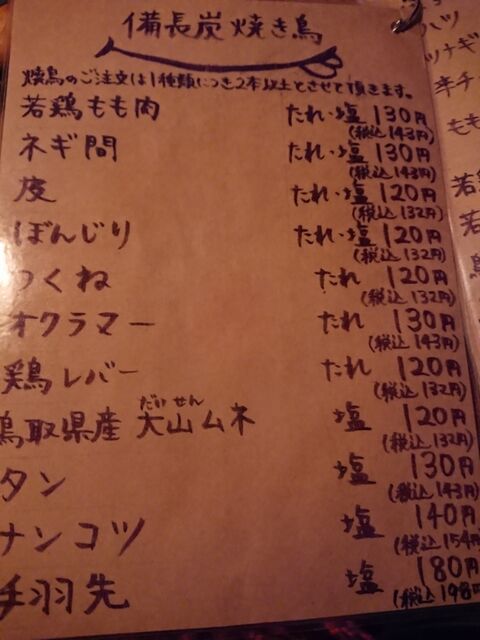 備長炭焼き鳥
焼鳥のご注文は1種類につき2本以上とさせて頂きます。
若鶏もも肉 たれ・塩 130円
(税込143円)
ネギ間 たれ・塩 130円
(税込143円)
皮 たれ・塩 120円
(税込132円)
ぼんじり たれ・塩 120円
(税込132円)
つくね たれ 120円
(税込132円)
オクラマー たれ 130円
(税込143円)
鶏レバー たれ 120円
(税込132円)
だいせん
鳥取県産 大山ムネ 塩 120円
(税込132円)
タン 塩 130円
(税込143円)
ナンコツ 塩 140円
(税込154円
手羽先 塩 180円
(税込198円)
ハツ
ツナギ
もも
若